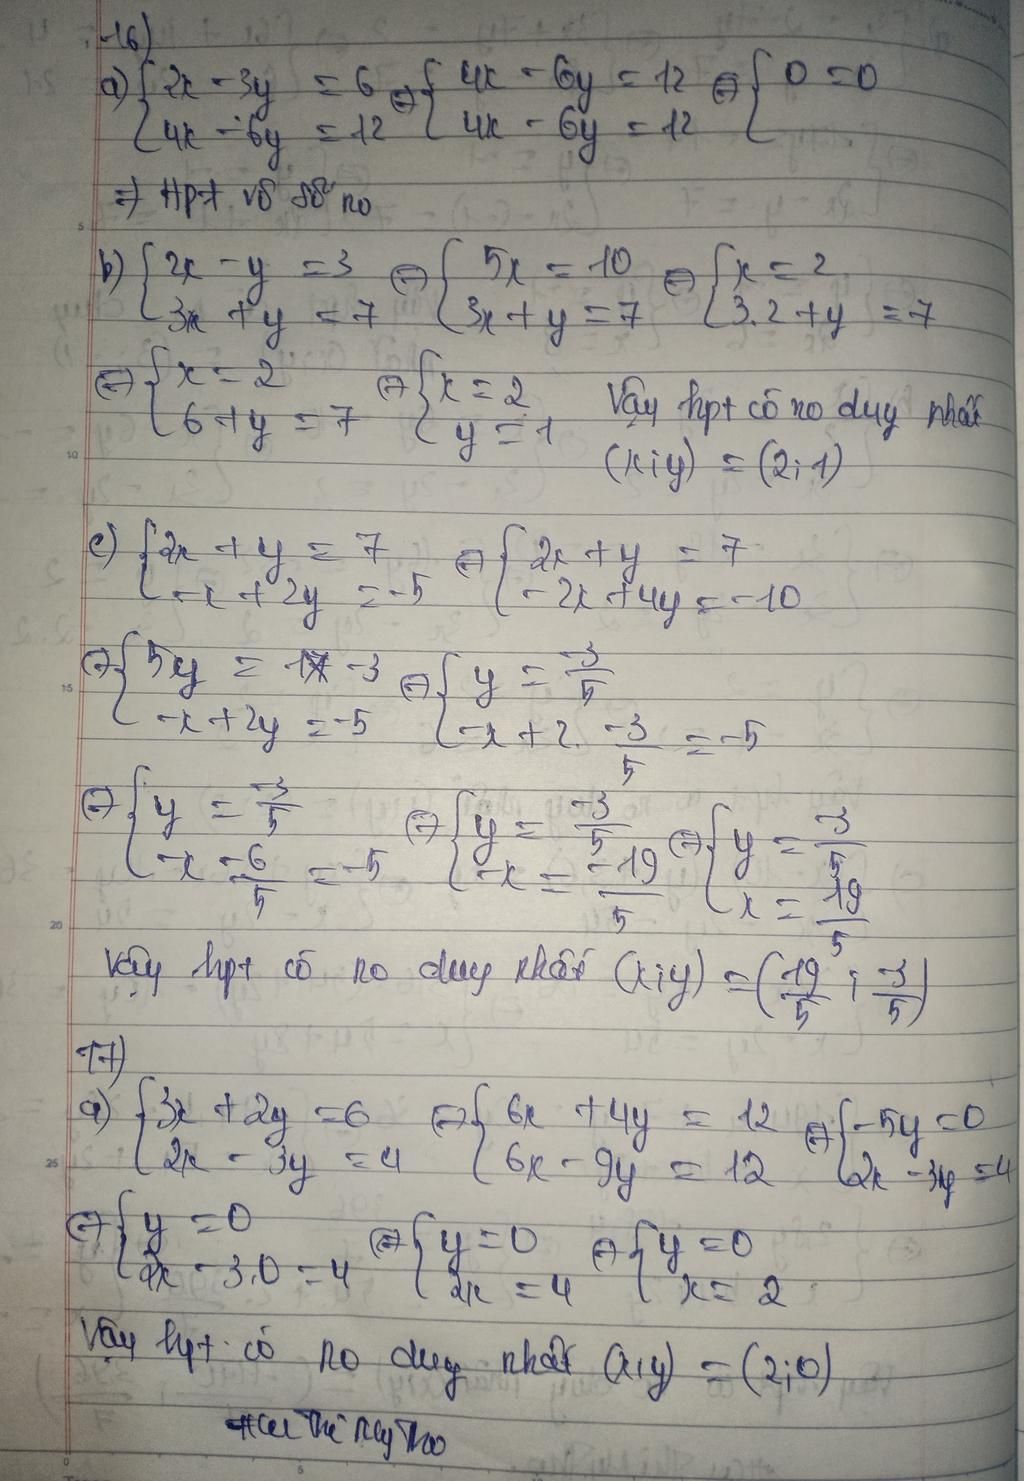 16)
a) { 2x - 3y = 6 ; 4x - 6y = 12 ⇔ { 4x - 6y = 12 ; 4x - 6y = 12 ⇔ { 0 = 0
=> Hpt vô số no
b) { 2x - y = 3 ; 3x + y = 7 ⇔ { 5x = 10 ; 3x + y = 7 ⇔ { x = 2 ; 3.2 + y = 7
⇔ { x = 2 ; 6 + y = 7 ⇔ { x = 2 ; y = 1 Vậy hpt có no duy nhất
(x;y) = (2;1)
c) { 2x + y = 7 ; -x + 2y = -5 ⇔ { 2x + y = 7 ; -2x + 4y = -10
⇔ { 5y = -3 ; -x + 2y = -5 ⇔ { y = -3/5 ; -x + 2. -3/5 = -5
⇔ { y = -3/5 ; -x -6/5 = -5 ⇔ { y = -3/5 ; -x = -19/5 ⇔ { y = -3/5 ; x = 19/5
Vậy hpt có no duy nhất (x;y) = (19/5 ; -3/5)
17)
a) { 3x + 2y = 6 ; 2x - 3y = 4 ⇔ { 6x + 4y = 12 ; 6x - 9y = 12 ⇔ { -5y = 0 ; 2x - 3y = 4
⇔ { y = 0 ; 2x - 3.0 = 4 ⇔ { y = 0 ; 2x = 4 ⇔ { y = 0 ; x = 2
Vậy hpt có no duy nhất (x;y) = (2;0)
5
10
15
20
25
0
5